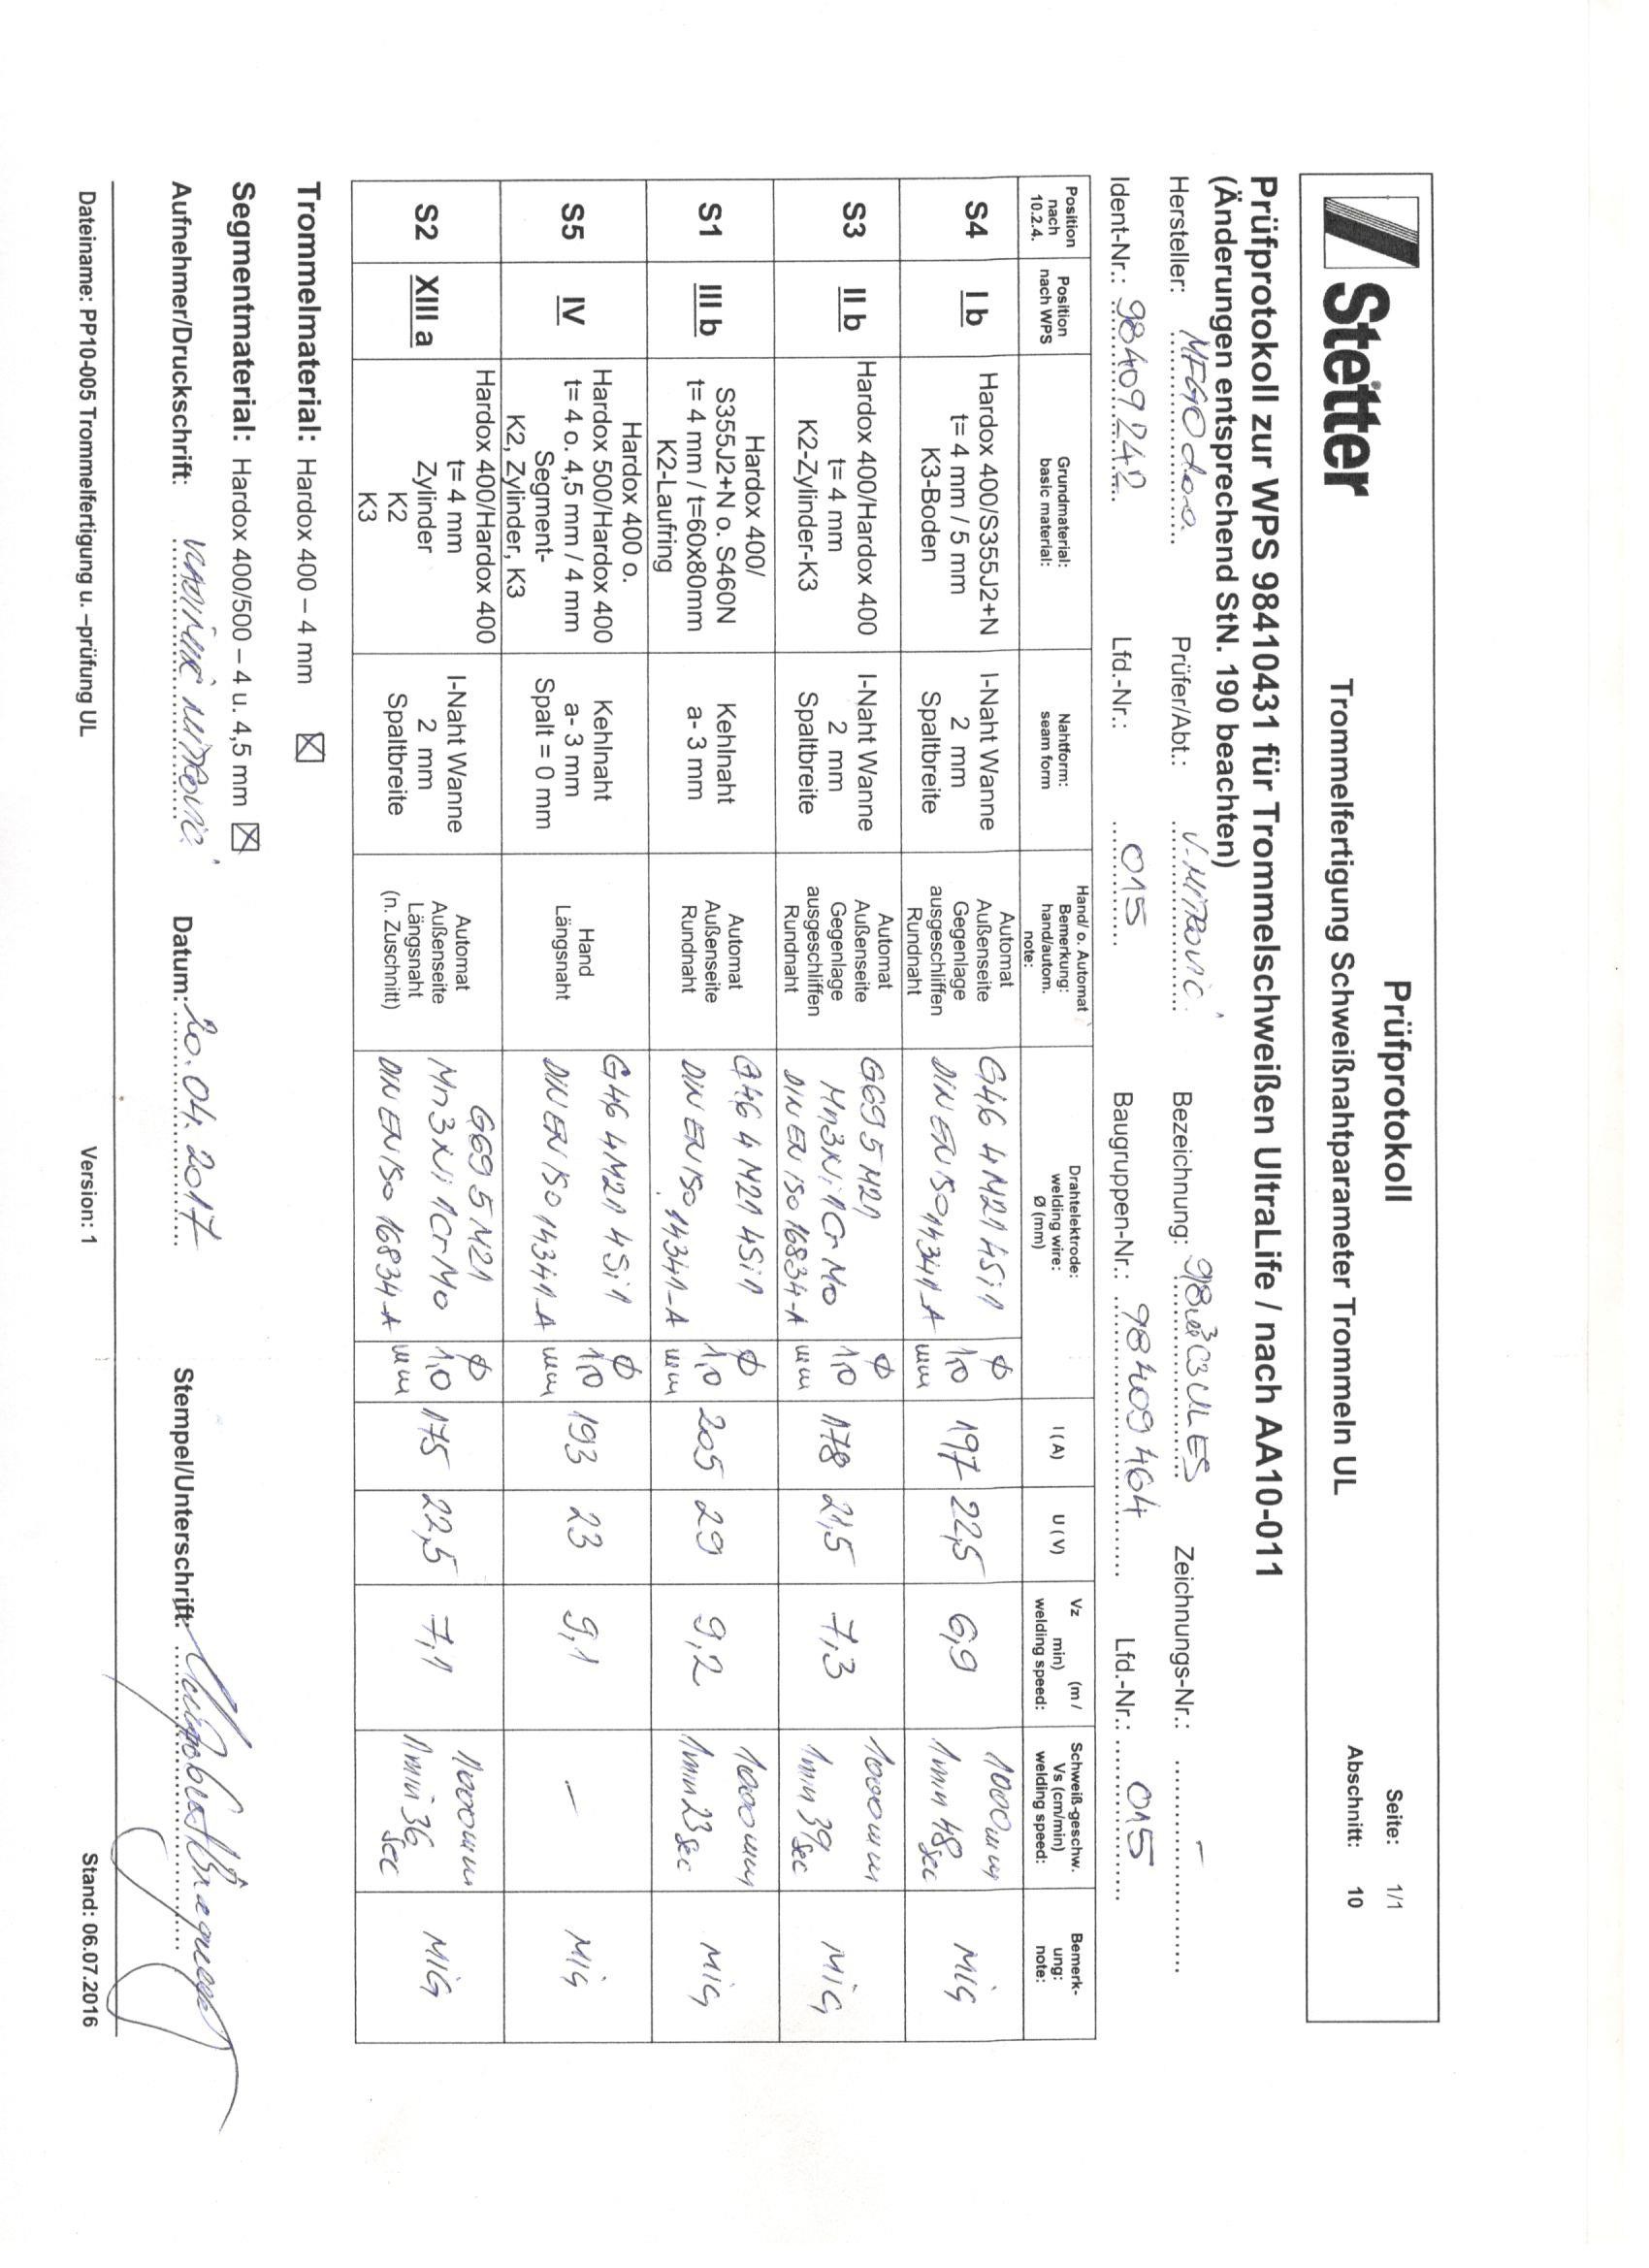 Stetter
Prüfprotokoll
Trommelfertigung Schweißnahtparameter Trommeln UL
Seite: 1/1
Abschnitt: 10
Prüfprotokoll zur WPS 98410431 für Trommelschweißen UltraLife / nach AA10-011
(Änderungen entsprechend StN. 190 beachten)
Hersteller: MEGO d.o.o. Prüfer/Abt.: V. MITROVIĆ Bezeichnung: Zeichnungs-Nr.: –
Ident-Nr.: 98409242 Lfd.-Nr.: 015 Baugruppen-Nr.: 98409464 Lfd.-Nr.: 015
Position
nach
10.2.4.
Position
nach WPS
Grundmaterial:
basic material:
Nahtform:
seam form
Hand/ o. Automat
Bemerkung:
hand/autom.
note:
Drahtelektrode:
welding wire:
Ø (mm)
I ( A)
U ( V)
Vz (m /
min)
welding speed:
Schweiß-geschw.
Vs (cm/min)
welding speed:
Bemerk-
ung:
note:
S4
I b
Hardox 400/S355J2+N
t= 4 mm / 5 mm
K3-Boden
I-Naht Wanne
2 mm
Spaltbreite
Automat
Außenseite
Gegenlage
ausgeschliffen
Rundnaht
G46 4M21 4Si1
DIN EN ISO 14341-A
Ø
1,0
mm
197
22,5
6,9
1000mm
1min 48sec
MIG
S3
II b
Hardox 400/Hardox 400
t= 4 mm
K2-Zylinder-K3
I-Naht Wanne
2 mm
Spaltbreite
Automat
Außenseite
Gegenlage
ausgeschliffen
Rundnaht
G69 5 M21
Mn3Ni1CrMo
DIN EN ISO 16834-A
Ø
1,0
mm
178
21,5
7,3
1000mm
1min 39sec
MIG
S1
III b
Hardox 400/
S355J2+N o. S460N
t= 4 mm / t=60x80mm
K2-Laufring
Kehlnaht
a- 3 mm
Automat
Außenseite
Rundnaht
G46 4 M21 4Si1
DIN EN ISO 14341-A
Ø
1,0
mm
205
29
9,2
1000mm
1min 23sec
MIG
S5
IV
Hardox 400 o.
Hardox 500/Hardox 400
t= 4 o. 4,5 mm / 4 mm
Segment-
K2, Zylinder, K3
Kehlnaht
a- 3 mm
Spalt = 0 mm
Hand
Längsnaht
G46 4M21 4Si1
DIN EN ISO 14341-A
Ø
1,0
mm
193
23
9,1
–
MIG
S2
XIII a
Hardox 400/Hardox 400
t= 4 mm
Zylinder
K2
K3
I-Naht Wanne
2 mm
Spaltbreite
Automat
Außenseite
Längsnaht
(n. Zuschnitt)
G69 5 M21
Mn3Ni1CrMo
DIN EN ISO 16834-A
Ø
1,0
mm
175
22,5
7,1
1000mm
1min 36
sec
MIG
Trommelmaterial: Hardox 400 – 4 mm ☒
Segmentmaterial: Hardox 400/500 – 4 u. 4,5 mm ☒
Aufnehmer/Druckschrift: MITROVIĆ Datum: 20.04.2017 Stempel/Unterschrift:
Dateiname: PP10-005 Trommelfertigung u. –prüfung UL Version: 1 Stand: 06.07.2016